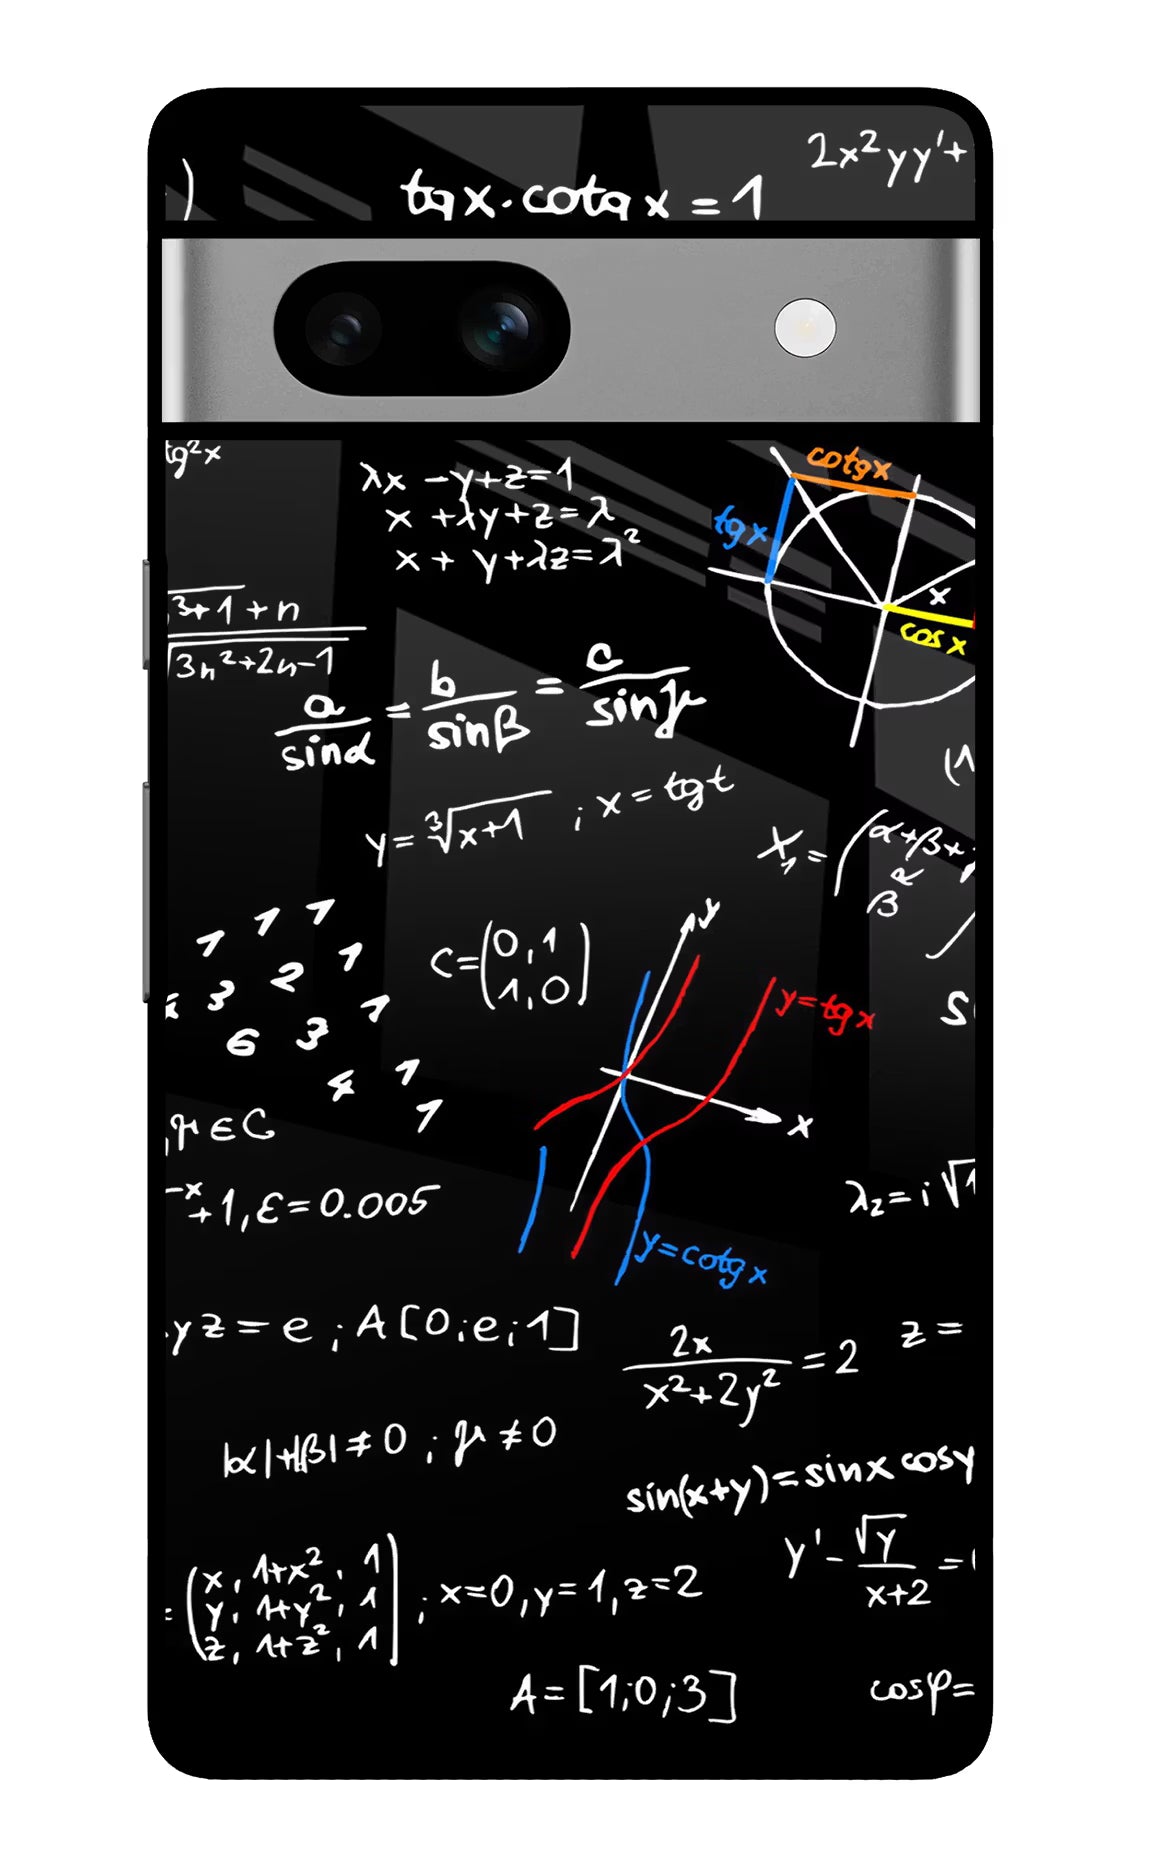 )
tgx·cotgx=1
2x²yy'+
tg²x
λx -y+z=1
x +λy+z=λ
x + y+λz=λ²
cotgx
tgx
x
cosx
3+1+n
√3n²+2n-1
a/sinα = b/sinβ = c/sinγ
y=∛x+1 ; x=tgt
(1
X₁=(α+β+
β^α
1 1 1
3 2 1
6 3 1
4 1
1
C=(0,1
1,0)
y
y=tgx
x
y=cotgx
S
,γ∈C
-x+1,ε=0.005
λ₂=i√1
yz=e;A[0;e;1]
2x/x²+2y²=2
z=
|α|+|β|≠0;γ≠0
sin(x+y)=sinx cosy
y'-√y/x+2=
=(x, 1+x², 1
y, 1+y², 1
z, 1+z², 1) ; x=0,y=1,z=2
A=[1;0;3]
cosφ=